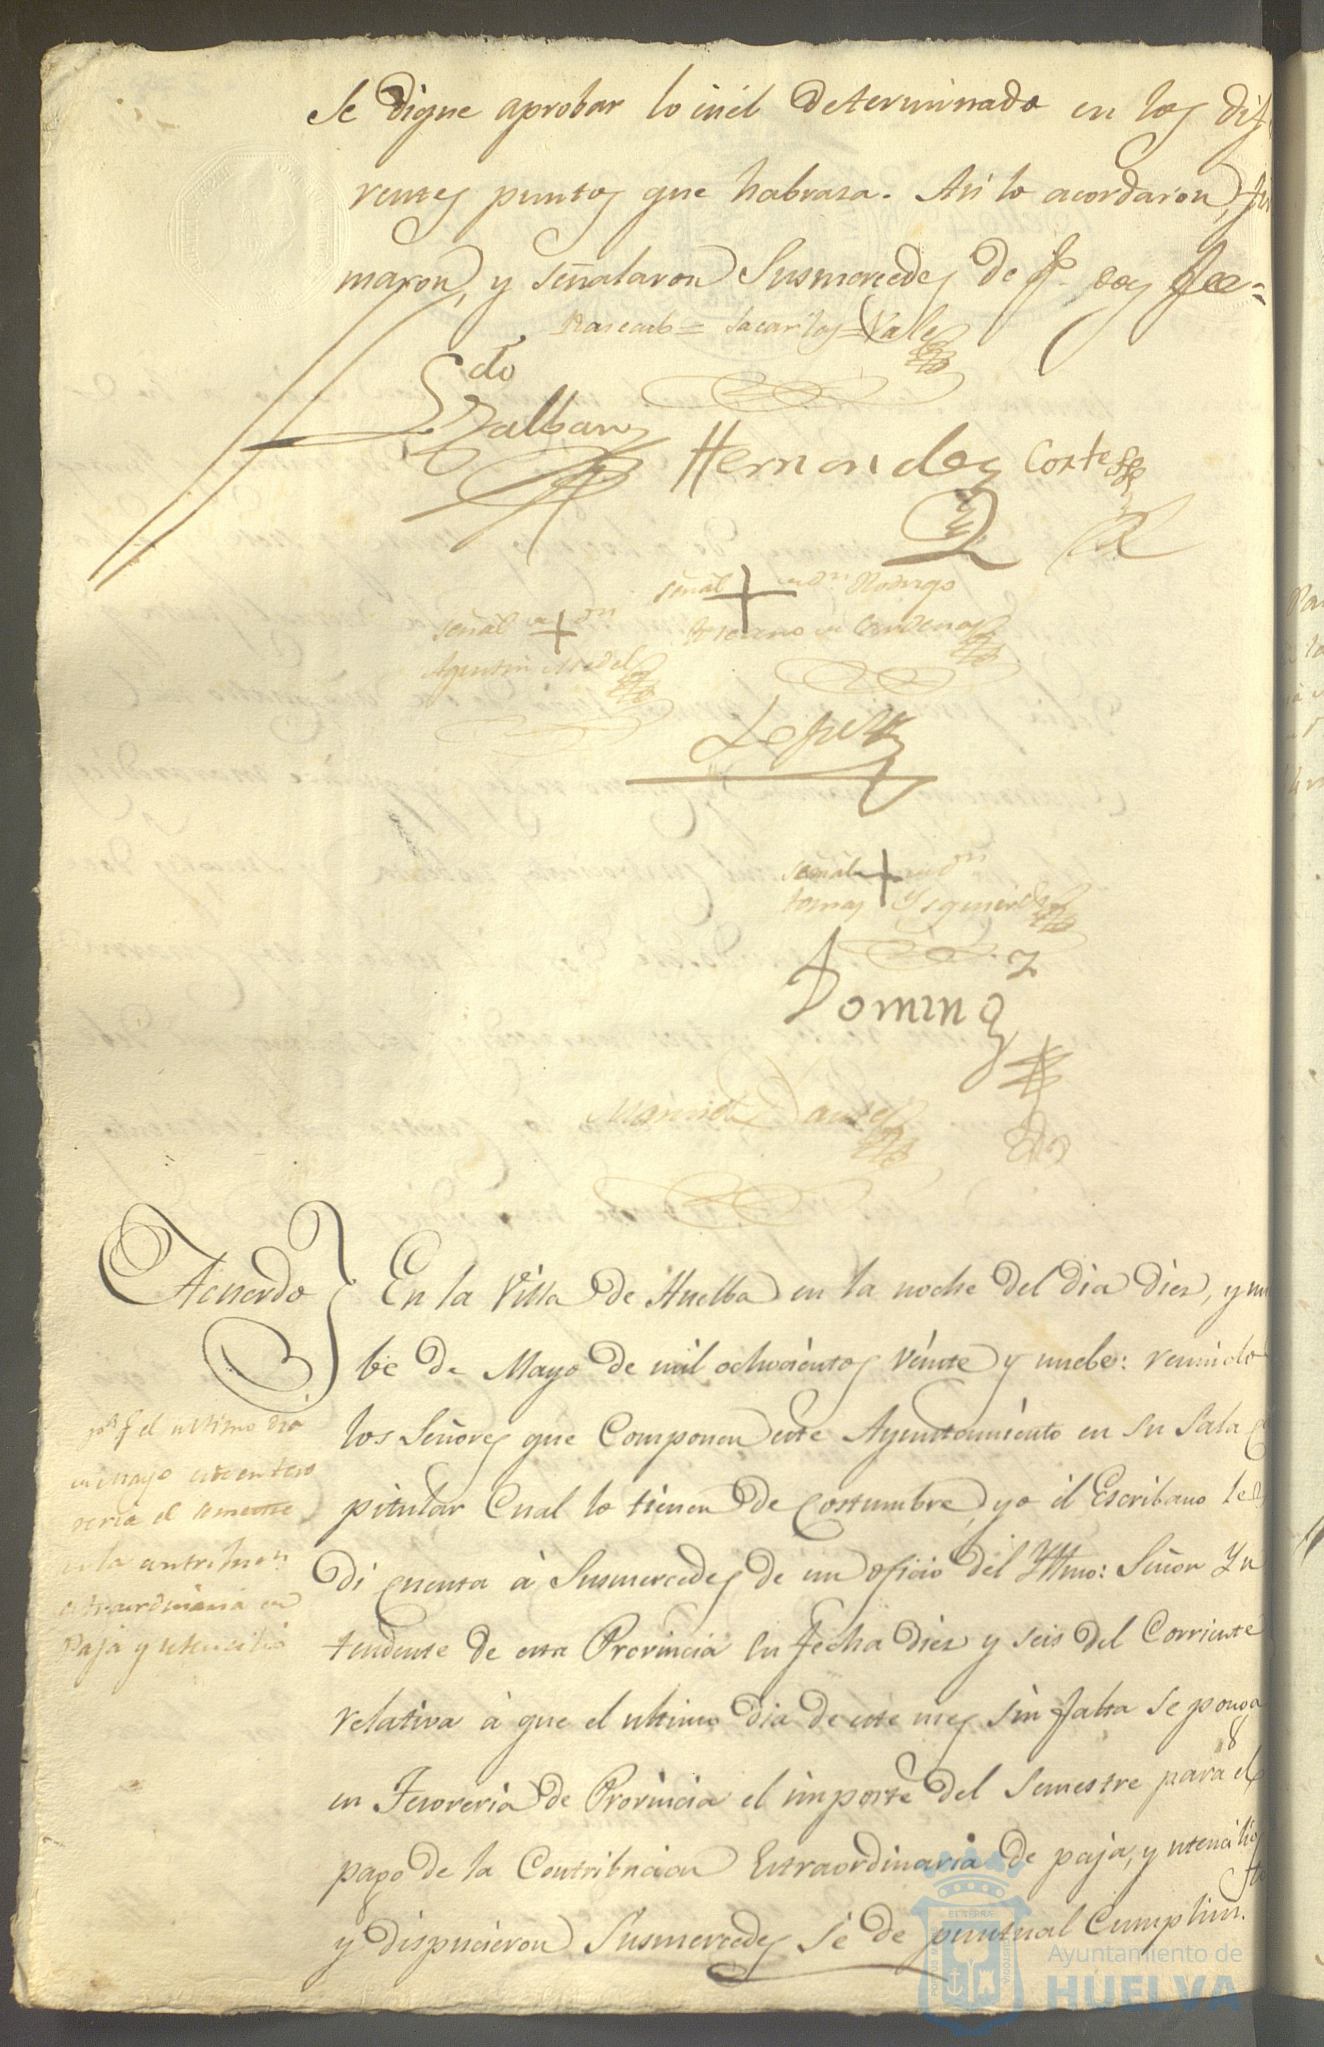 Se digne aprobar lo en él determinado en los dife
rentes puntos que habrasa. Asi lo acordaron, fir
maron, y señalaron Susmercedes de q.e doy fee=
Vale
Ldo
Zalban
Hernandez Cortes
señal + de Dn Rodrigo
señal de + Dn
de Cardenas
Agustin Medel
Lopez
señal + de Dn
tomas Ysquierdo
Domingz
Manuel
Acuerdo
En la Villa de Huelba en la noche del dia diez, y nu
be de Mayo de mil ochocientos veinte y nuebe: reunidos
los Señores que Componen este Ayuntamiento en su Sala Ca
pitular Cual lo tienen de Costumbre, yo el Escribano les
di cuenta á Susmercedes de un oficio del Yltmo: Señor Yn
tendente de esta Provincia su fecha diez y seis del Corriente
relativa á que el ultimo dia de este mes sin falta se ponga
en Tesoreria de Provincia el importe del Semestre para el
pago de la Contribucion Extraordinaria de paja, y utencilios
y dispucieron Susmercedes se de puntual Cumplim.to
pa q.e el ultimo dia
de Mayo este en teso
reria el semestre
de la contribucn
extraordinaria de
Paja y utencilio
Ayuntamiento de
HUELVA